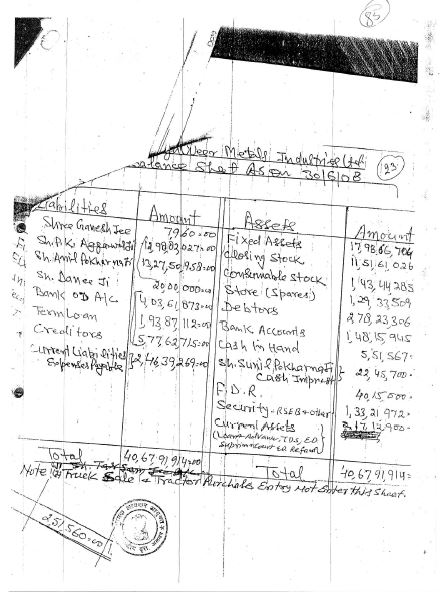 85
Veer Metals Industries Ltd.
123
Balance Sheet As on 30/6/08
Liabilities Amount Assets Amount
Shree Ganesh Jee 7960=00 Fixed Assets 17,98,66,704
Sh. P.K. Aggarwal Ji 12,98,82,027=00 Closing Stock 11,51,61,026
Sh. Anil Pokharna Ji 13,27,50,958=00 Consumable Stock 1,43,44,283
Sh. Dance Ji 20,00,000=00 Store (Spares) 1,29,33,509
Bank OD A/c 4,03,61,873=00 Debtors 2,78,23,306
Term Loan 1,93,87,112=00 Bank Accounts 1,48,15,945
Creditors 5,77,62,715=00 Cash in Hand 5,51,567=
Current Liabilities 2,46,39,269=00 Sh. Sunil Pokharna Ji
Expenses Payable Cash Imprest 22,45,700=
F.D.R. 40,15,000=
Security - RSEB & other 1,33,21,972=
Current Assets
(Loans Advance, TDS, ED
Total 40,67,91,914=00 Total 40,67,91,914=
Note Truck Sale & Tractor Purchase Entry Not Enter this Sheet.
251,560=00